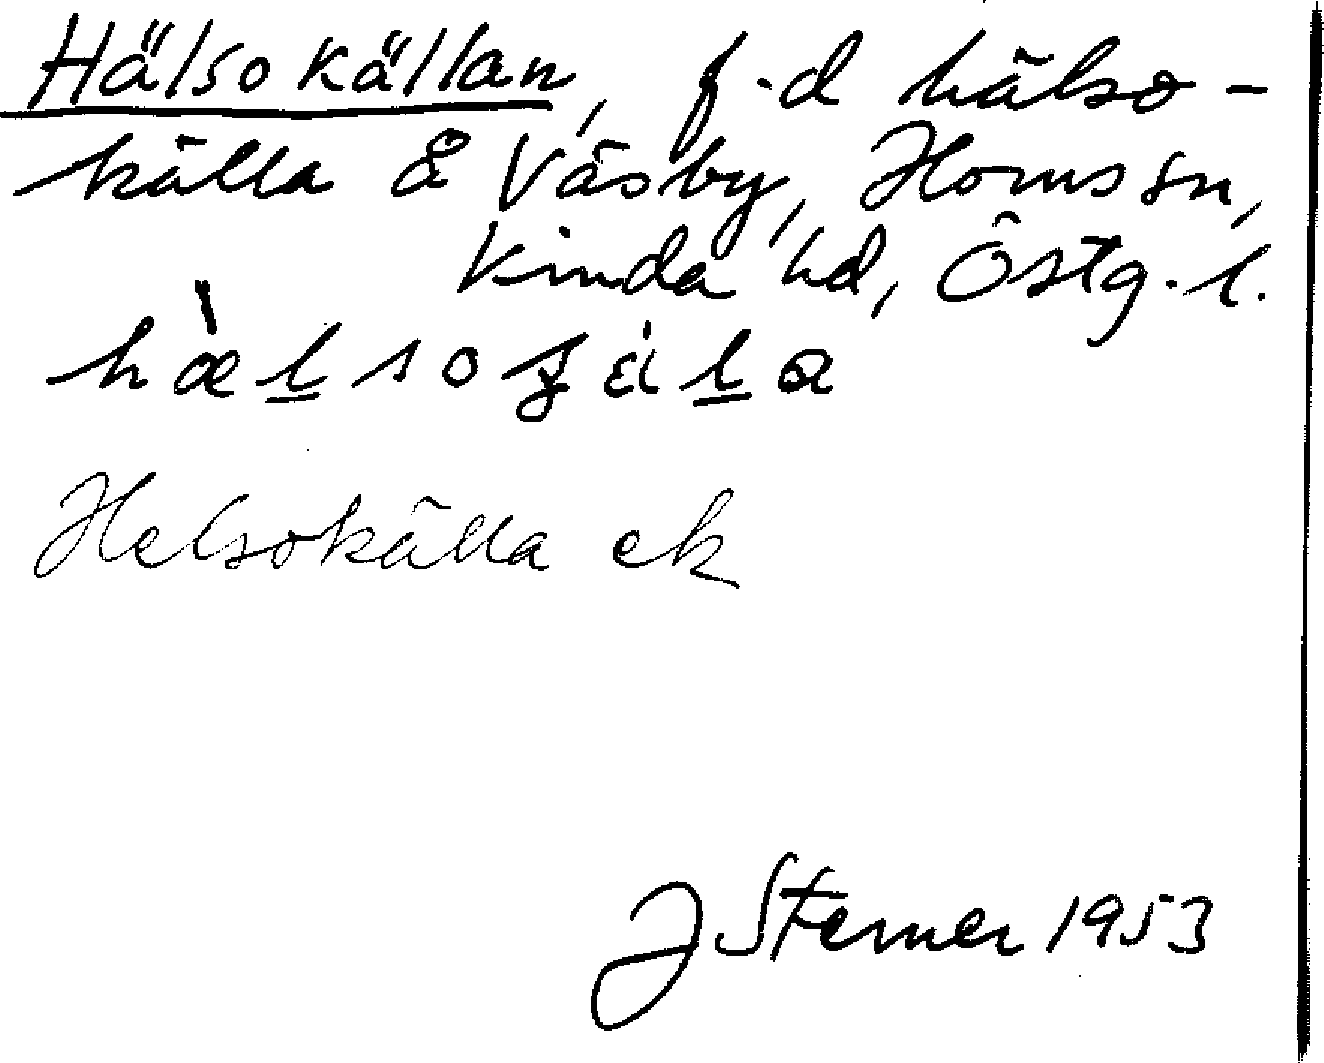 Hälsokällan, f.d hälso-
källa å Väsby, Horns sn,
Kinda hd, Östg.l.
Helsokälla ek
J Sterner 1953